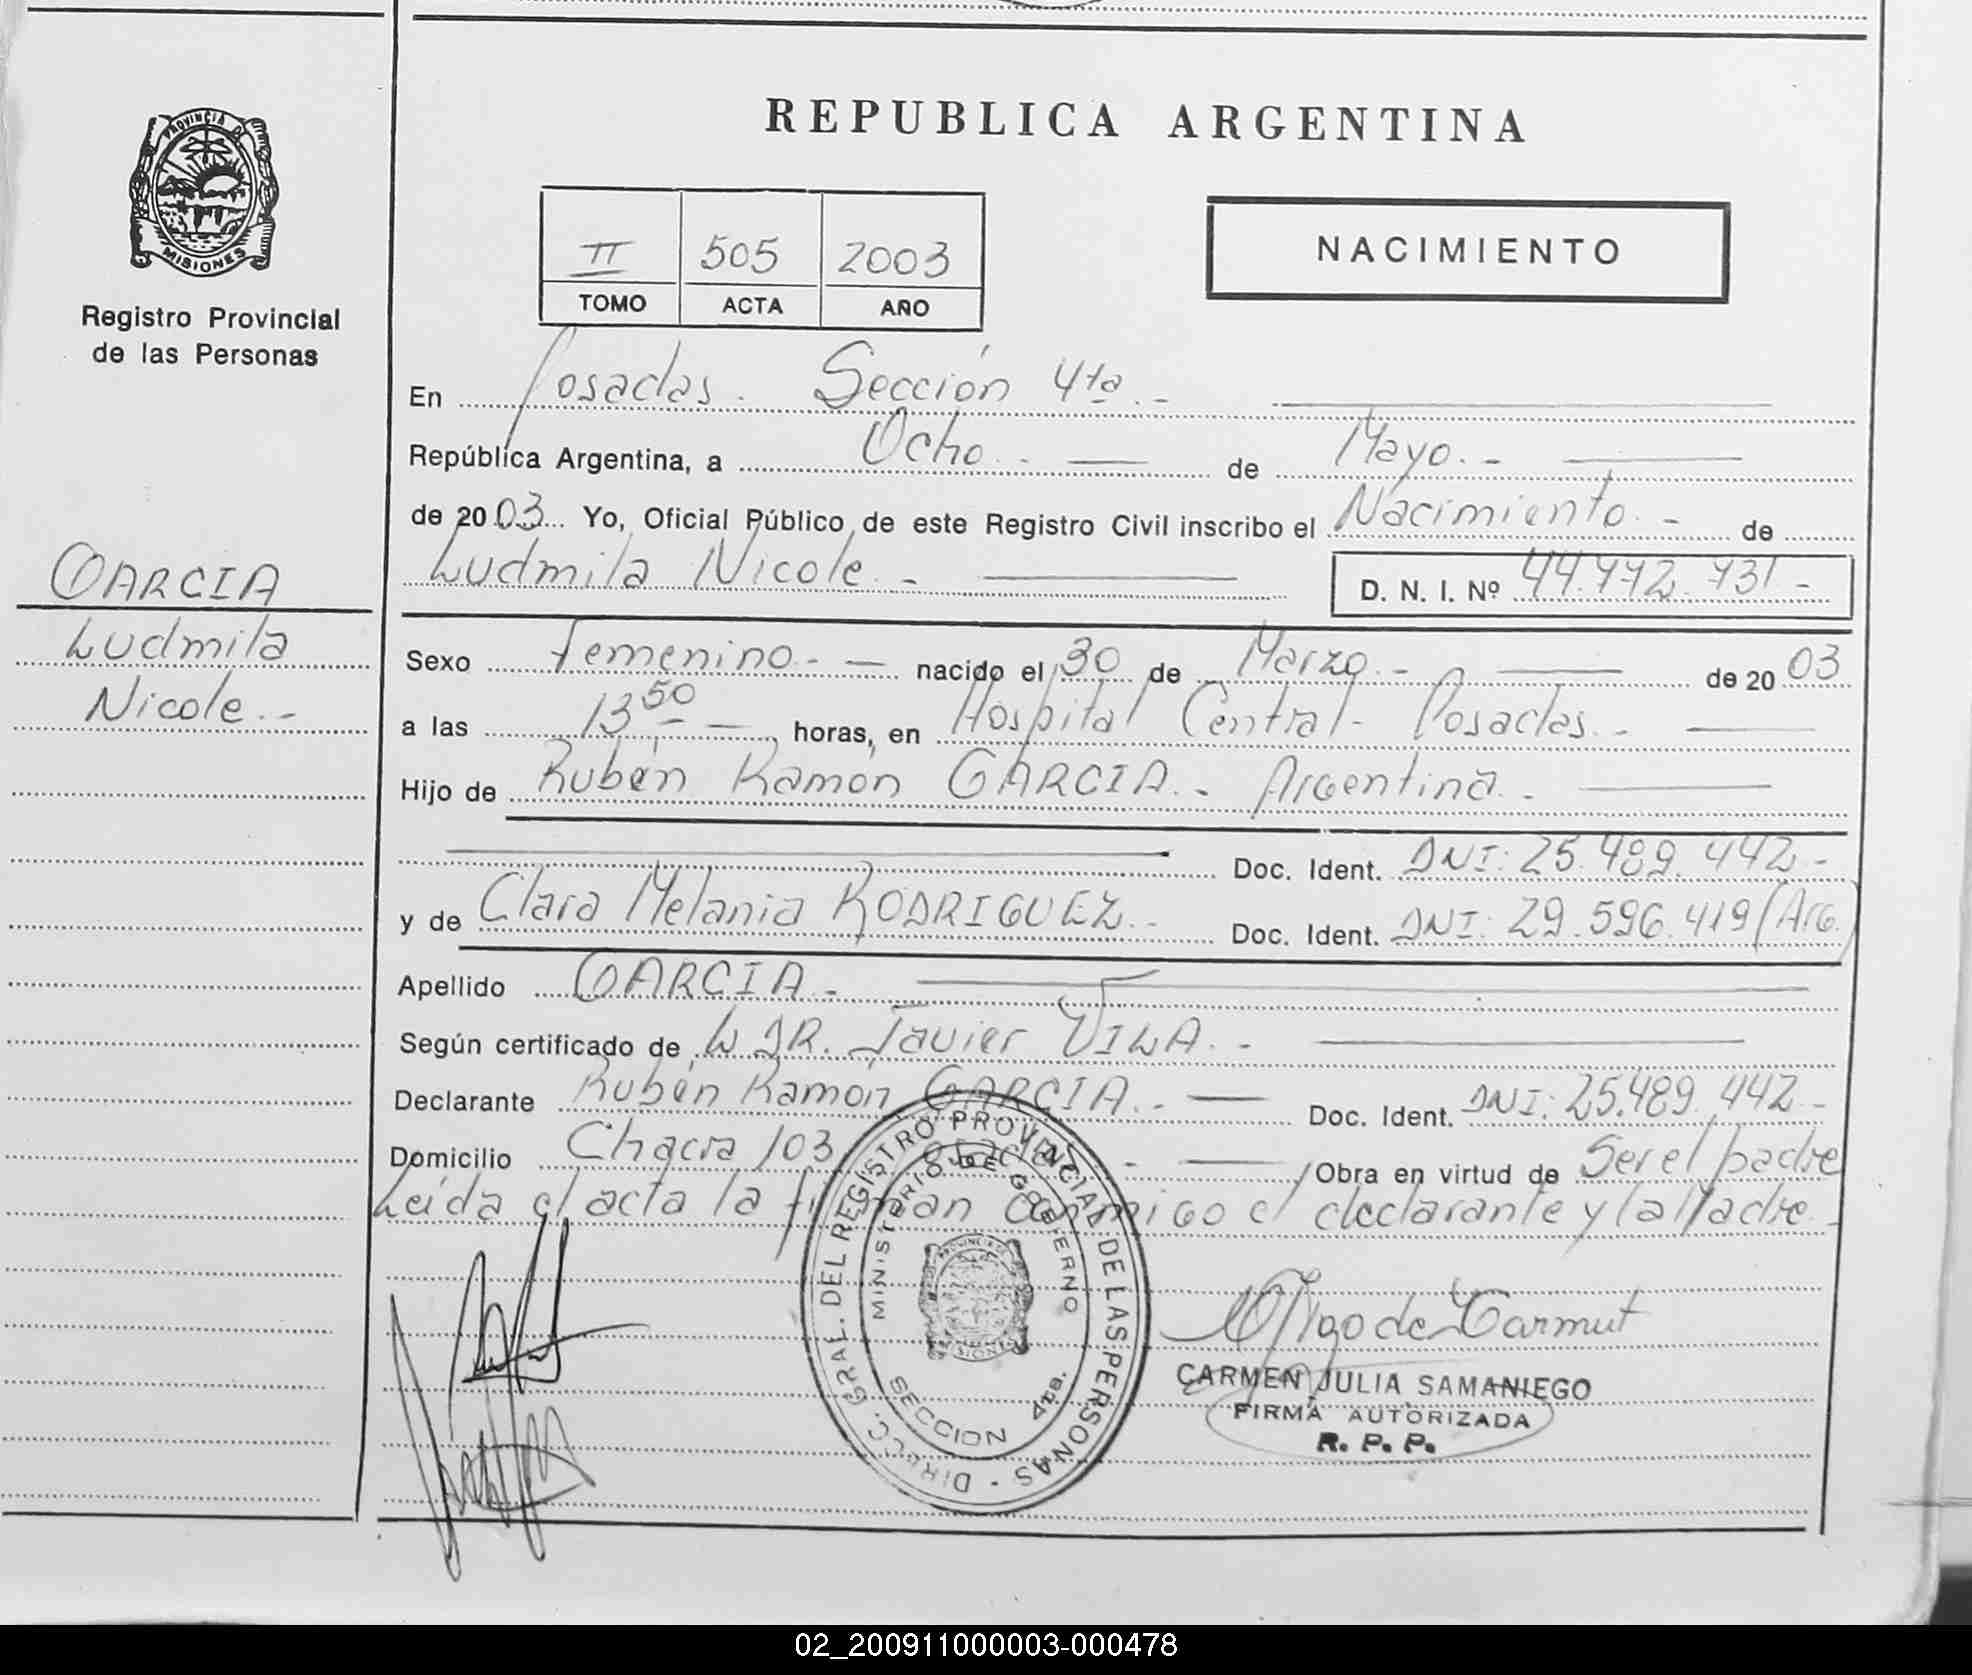 REPUBLICA ARGENTINA
PROVINCIA DE
MISIONES
Registro Provincial
de las Personas
II 505 2003
TOMO ACTA AÑO
NACIMIENTO
En Posadas. Sección 4ta.-
República Argentina, a Ocho.- de Mayo.-
de 2003... Yo, Oficial Público de este Registro Civil inscribo el Nacimiento.- de
Ludmila Nicole.- D. N. I. Nº 44.772.731-
GARCIA
Ludmila
Nicole.-
Sexo Femenino.- nacido el 30 de Marzo.- de 2003
a las 13 50 horas, en Hospital Central- Posadas.-
Hijo de Rubén Ramón GARCIA.- Argentina.-
Doc. Ident. DNI: 25.489.442-
y de Clara Melania RODRIGUEZ.- Doc. Ident. DNI: 29.596.419 (Arg.)
Apellido GARCIA.-
Según certificado de DR. Javier VILA.-
Declarante Rubén Ramón GARCIA.- Doc. Ident. DNI: 25.489.442-
Domicilio Chacra 103 Posadas.- Obra en virtud de Ser el padre
Leída el acta la firman conmigo el declarante y la Madre.-
DIRECC. GRAL. DEL REGISTRO PROVINCIAL DE LAS PERSONAS -
MINISTERIO DE GOBIERNO
SECCION 4ta.
CARMEN JULIA SAMANIEGO
FIRMA AUTORIZADA
R. P. P.
02_200911000003-000478